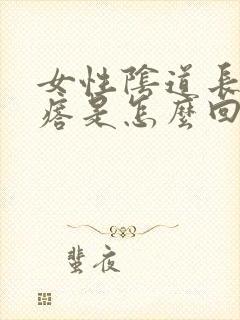 女性陰道長
痞是怎麼回
蜚夜